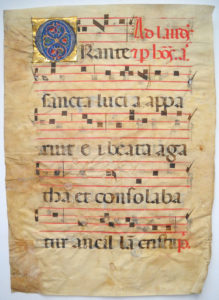 Ad laud
O Rante
sancta luci a appa
ruit e i beata aga
tha et consolaba
tur ancil lã cristi p̃.